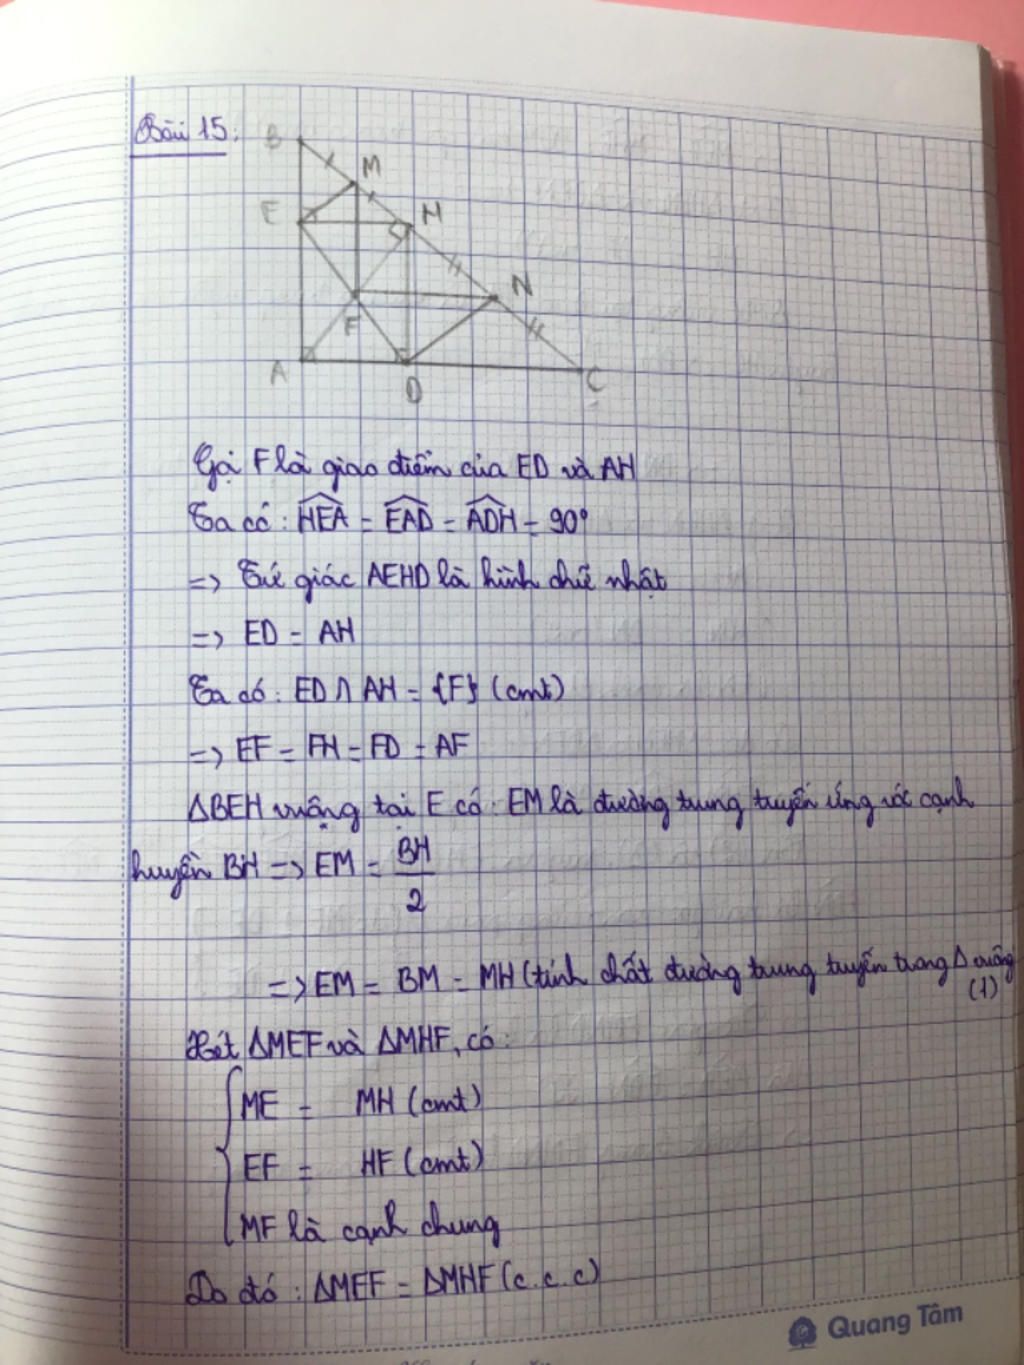 Bài 15:
B
M
E
H
N
F
A
D
C
Gọi F là giao điểm của ED và AH
Ta có: HEA = EAD = ADH = 90°
=> Tứ giác AEHD là hình chữ nhật
=> ED = AH
Ta có: ED ∩ AH = {F} (cmt)
=> EF = FH = FD = AF
ΔBEH vuông tại E có: EM là đường trung tuyến ứng với cạnh
huyền BH => EM = BH/2
=> EM = BM = MH (tính chất đường trung tuyến trong Δ vuông)
(1)
Xét ΔMEF và ΔMHF, có:
ME = MH (cmt)
EF = HF (cmt)
MF là cạnh chung
Do đó: ΔMEF = ΔMHF (c.c.c)
Quang Tâm